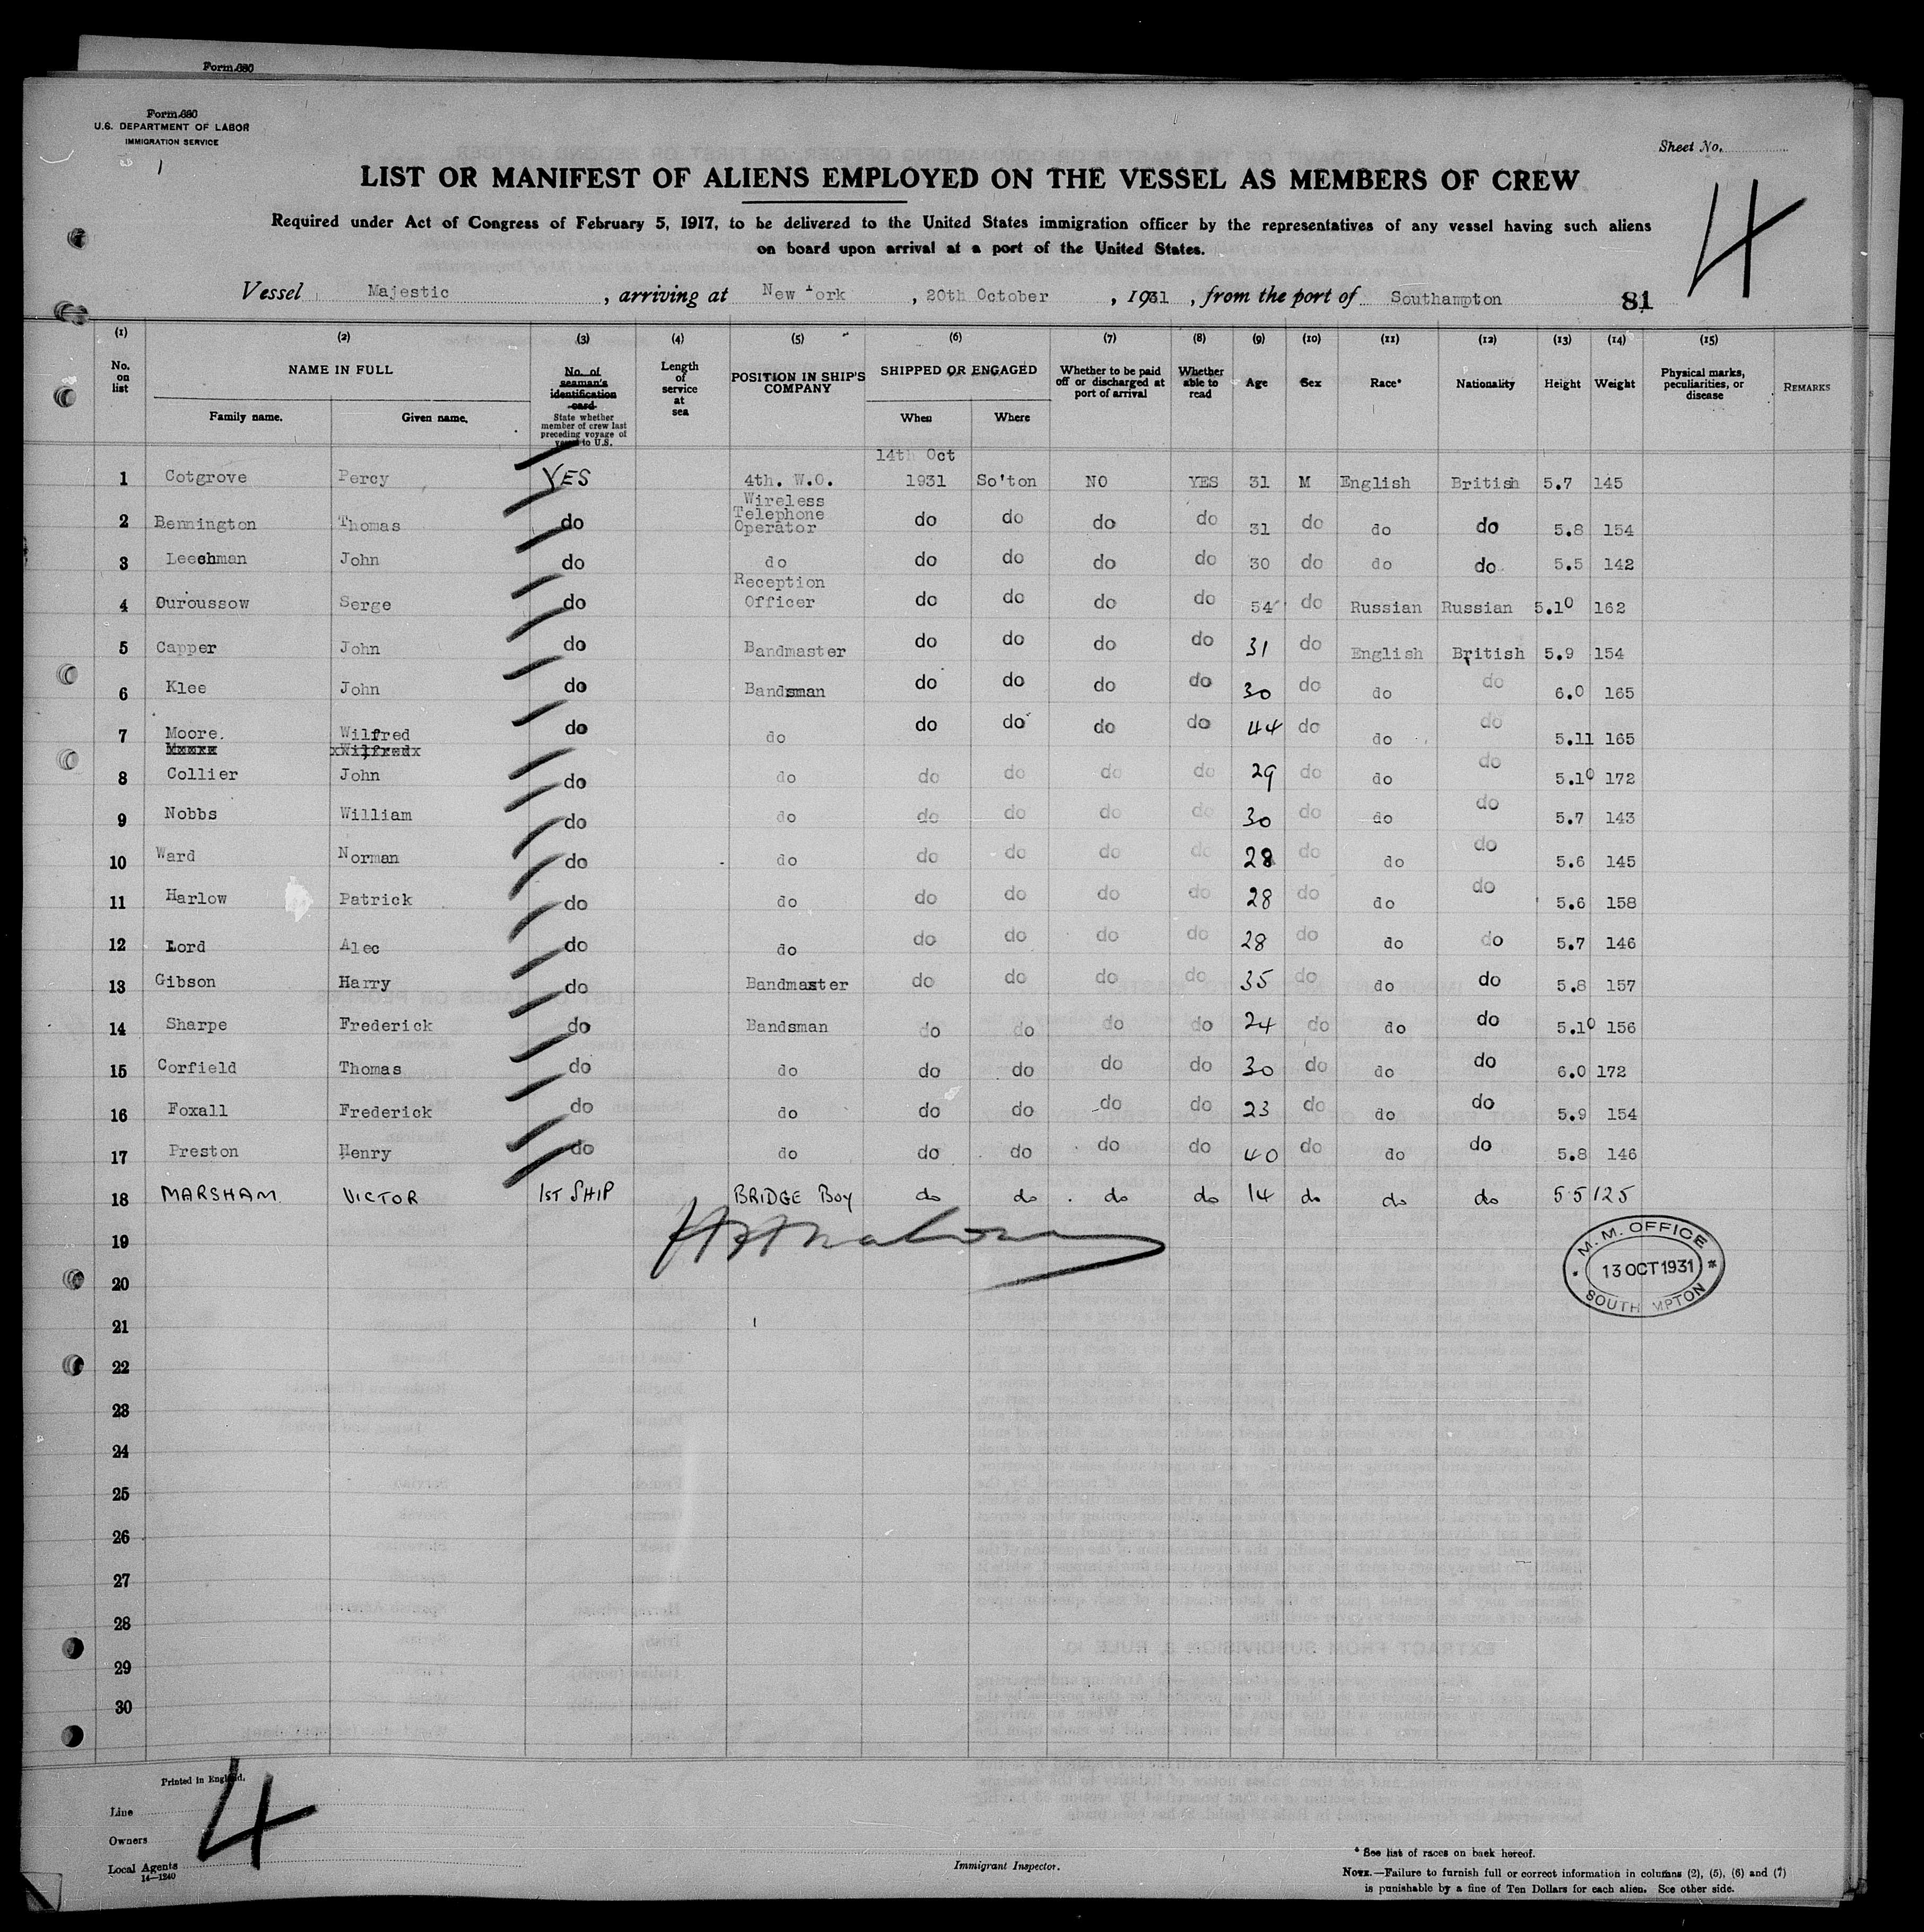 Form 680
Form 680
U.S. DEPARTMENT OF LABOR
IMMIGRATION SERVICE
Sheet No.
4
LIST OR MANIFEST OF ALIENS EMPLOYED ON THE VESSEL AS MEMBERS OF CREW
Required under Act of Congress of February 5, 1917, to be delivered to the United States immigration officer by the representatives of any vessel having such aliens
on board upon arrival at a port of the United States.
Vessel Majestic , arriving at New York , 20th October , 1931 , from the port of Southampton 81
(1) (2) (3) (4) (5) (6) (7) (8) (9) (10) (11) (12) (13) (14) (15)
No. on list NAME IN FULL Family name. Given name. No. of seaman's identification card State whether member of crew last preceding voyage of vessel to U.S. Length of service at sea POSITION IN SHIP'S COMPANY SHIPPED OR ENGAGED When Where Whether to be paid off or discharged at port of arrival Whether able to read Age Sex Race* Nationality Height Weight Physical marks, peculiarities, or disease REMARKS
1 Cotgrove Percy YES 4th. W.O. 14th Oct 1931 So'ton NO YES 31 M English British 5.7 145
2 Bennington Thomas do Wireless Telephone Operator do do do do 31 do do do 5.8 154
3 Leechman John do do do do do do 30 do do do 5.5 142
4 Ouroussow Serge do Reception Officer do do do do 54 do Russian Russian 5.10 162
5 Capper John do Bandmaster do do do do 31 do English British 5.9 154
6 Klee John do Bandsman do do do do 30 do do do 6.0 165
7 Moore. Wilfred do do do do do do 44 do do do 5.11 165
Moore xWilfredx
8 Collier John do do do do do do 29 do do do 5.10 172
9 Nobbs William do do do do do do 30 do do do 5.7 143
10 Ward Norman do do do do do do 28 do do do 5.6 145
11 Harlow Patrick do do do do do do 28 do do do 5.6 158
12 Lord Alec do do do do do do 28 do do do 5.7 146
13 Gibson Harry do Bandmaster do do do do 35 do do do 5.8 157
14 Sharpe Frederick do Bandsman do do do do 24 do do do 5.10 156
15 Corfield Thomas do do do do do do 30 do do do 6.0 172
16 Foxall Frederick do do do do do do 23 do do do 5.9 154
17 Preston Henry do do do do do do 40 do do do 5.8 146
18 MARSHAM VICTOR 1ST SHIP BRIDGE BOY do do do do 14 do do do 5 5 125
19
20
21
22
23
24
25
26
27
28
29
30
M. M. OFFICE
13 OCT 1931
SOUTH MPTON
Printed in England.
4
Line
Owners
Local Agents
14—1240
Immigrant Inspector.
* See list of races on back hereof.
NOTE.—Failure to furnish full or correct information in columns (2), (5), (6) and (7)
is punishable by a fine of Ten Dollars for each alien. See other side.